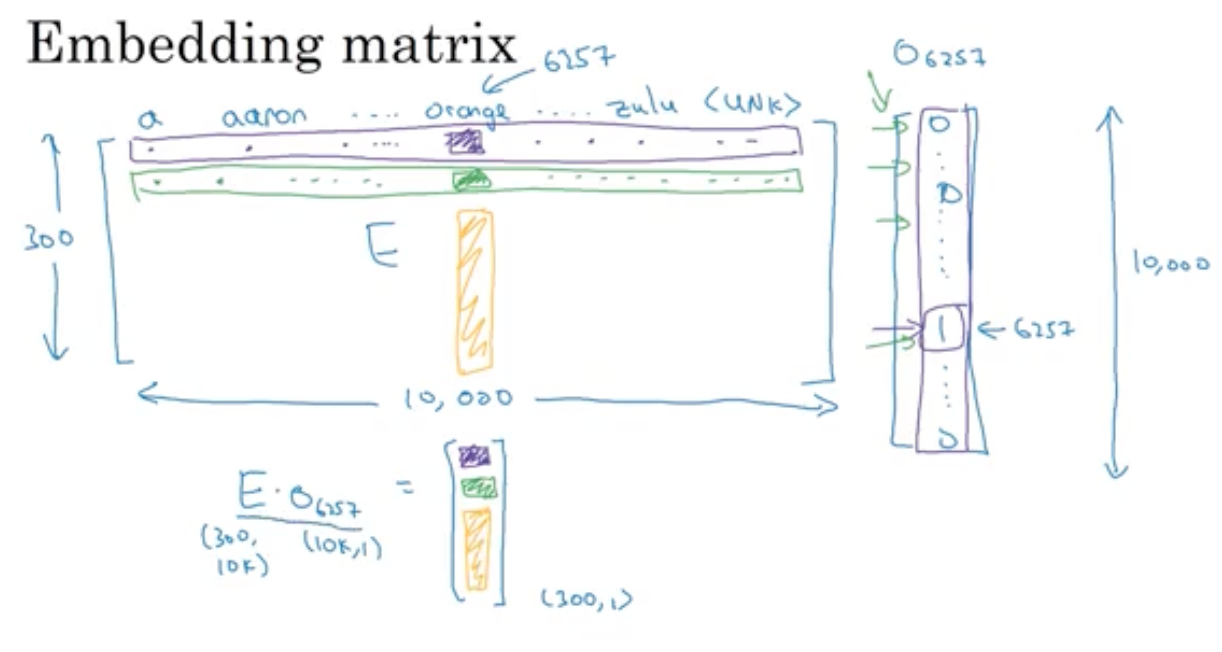 Embedding matrix
6257
O6257
a aaron .... orange .... zulu <UNK>
0
0
300
E
10,000
1 ← 6257
10,000
0
E · O6257 =
(300, 10K) (10K,1)
(300,1)